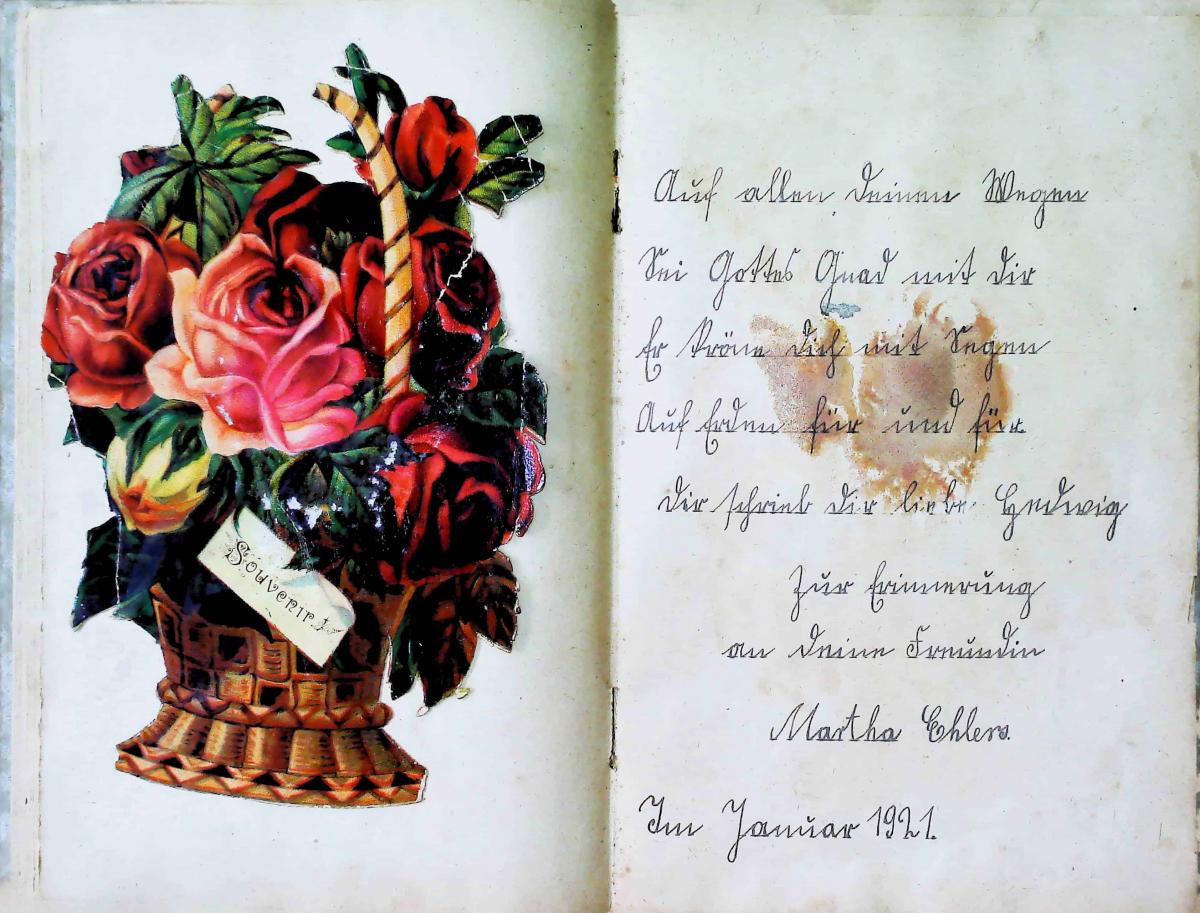 Souvenir!
Auf allen deinen Wegen
Sei Gottes Gnad mit dir
Er kröne dich mit Segen
Auf Erden für und für.
Dir schrieb dir liebe Hedwig
Zur Erinnerung
an deine Freundin
Martha Ehlers.
Im Januar 1921.